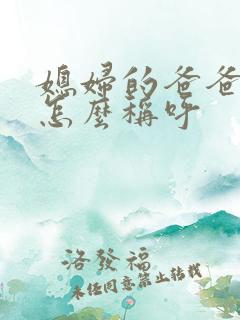 媳婦的爸爸
怎麼稱呼
洛發福
未經同意禁止轉載